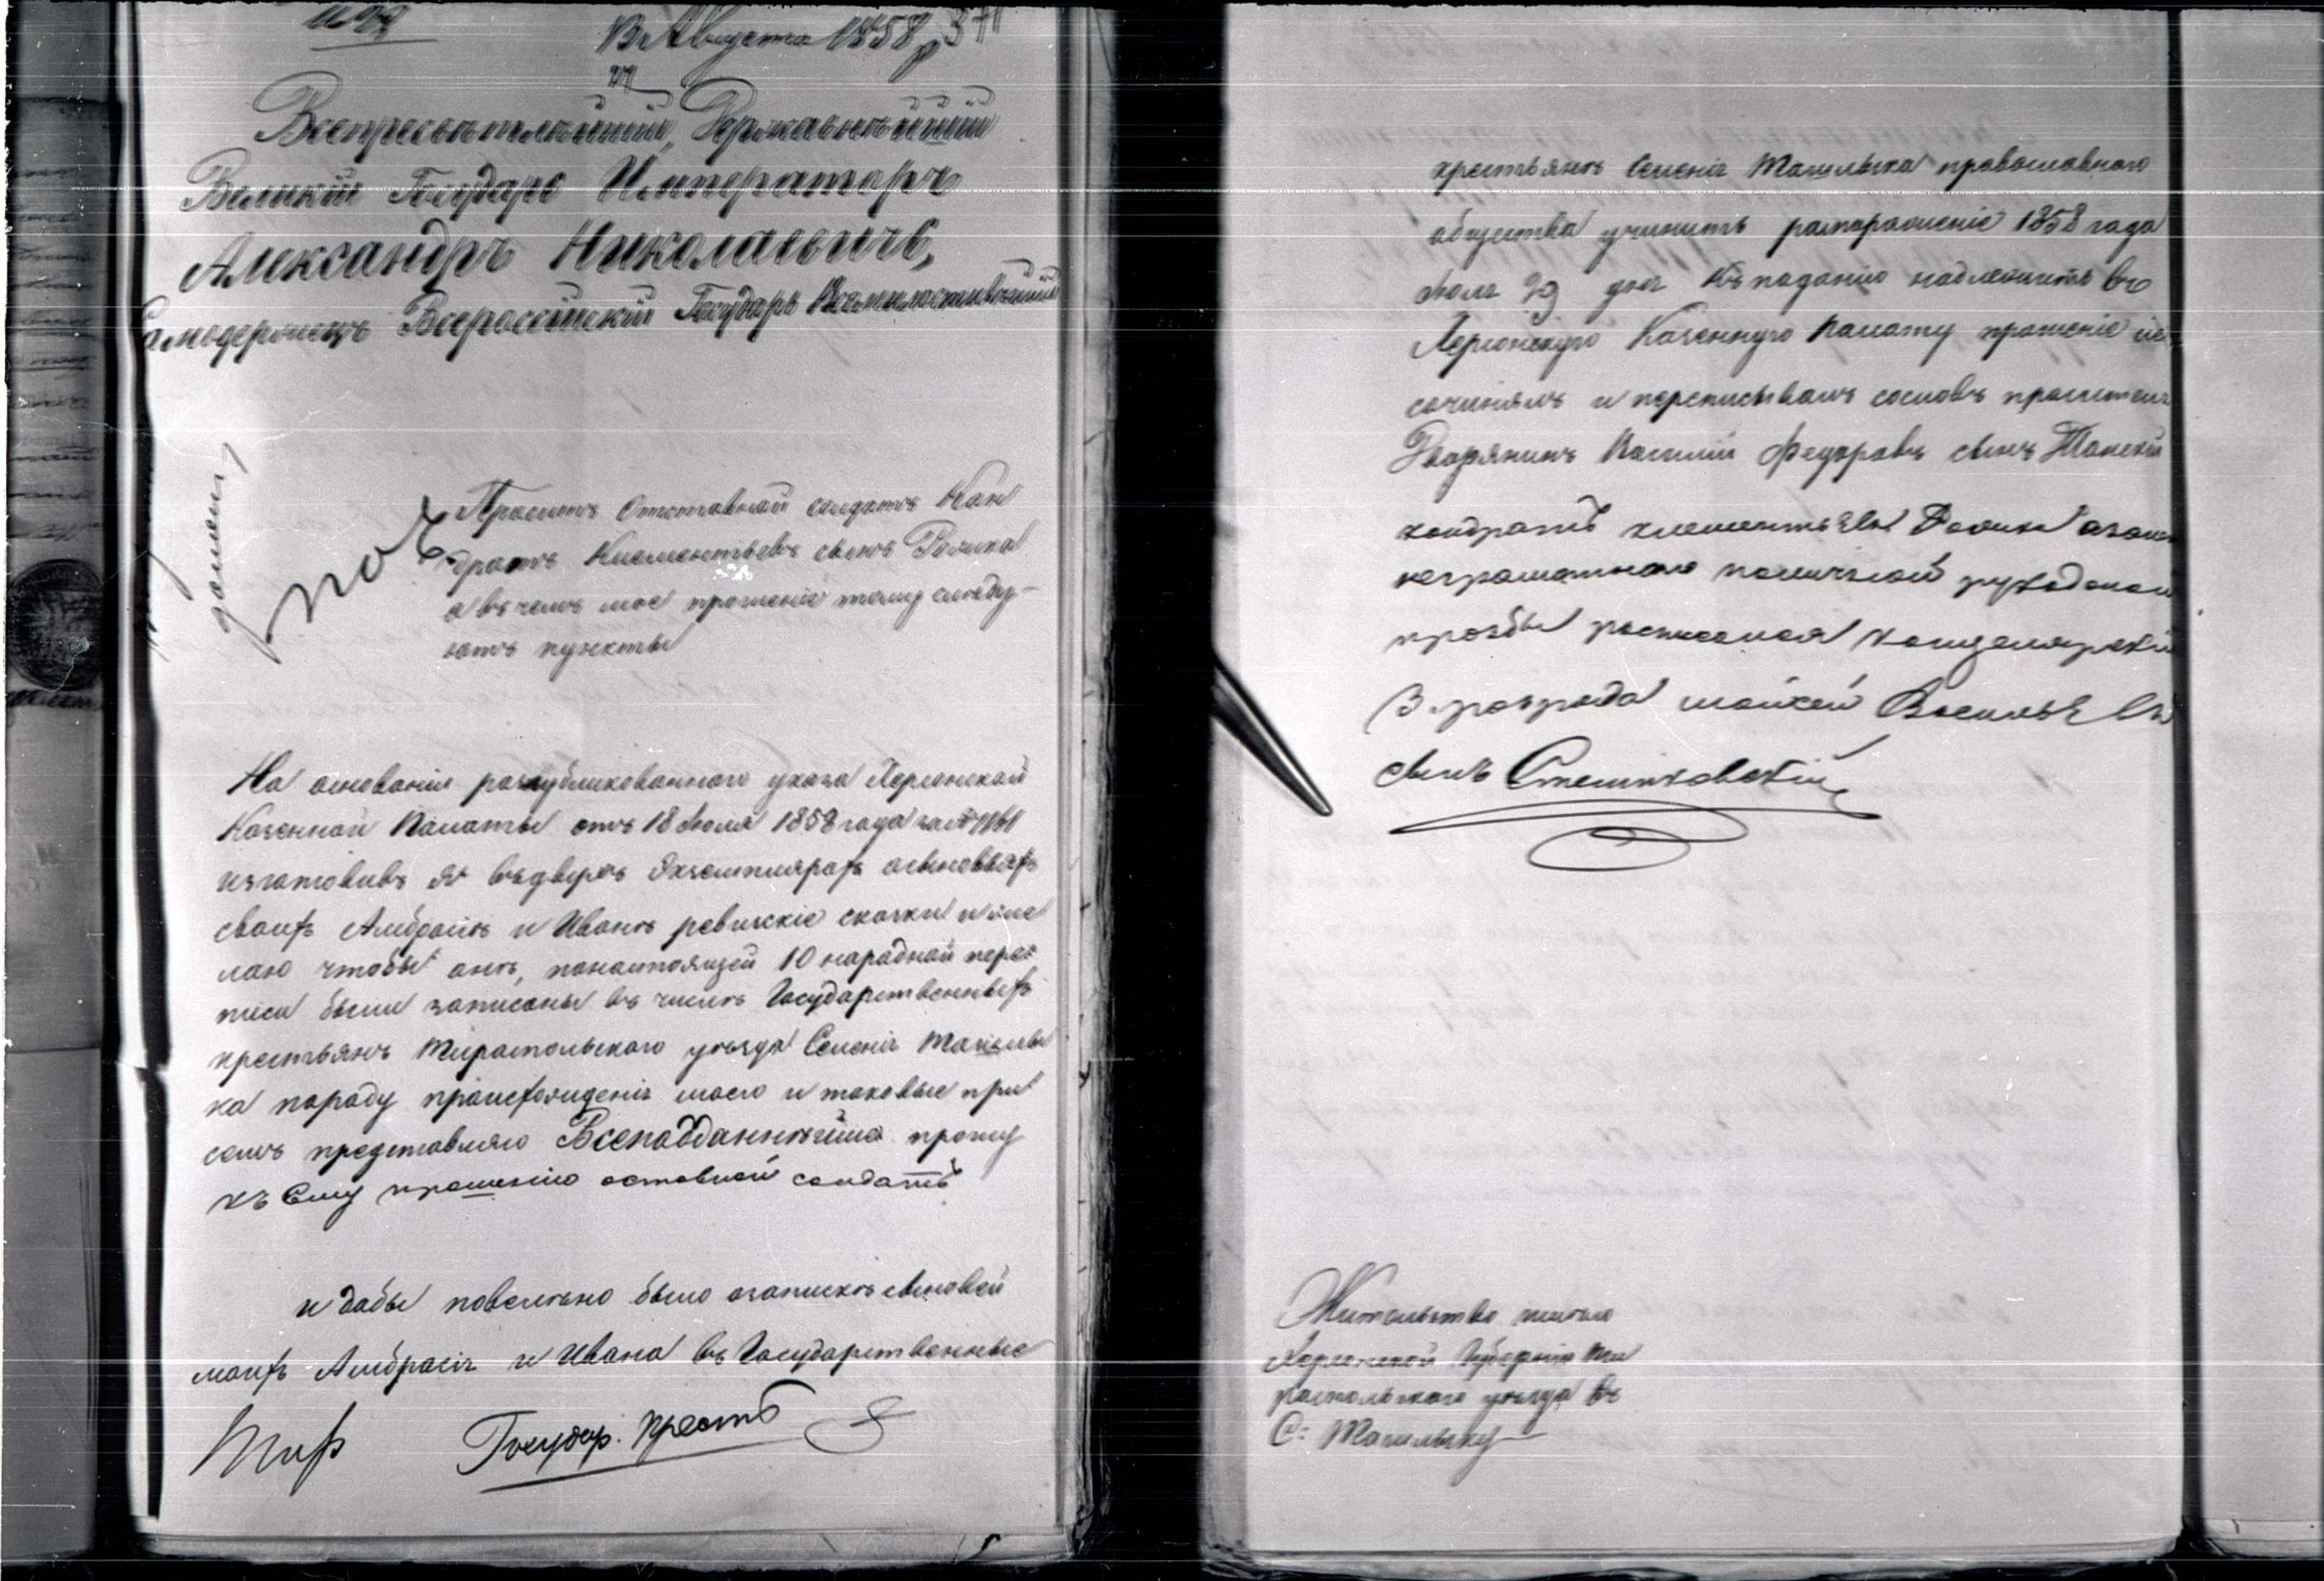 Августа 1858
Всепресвѣтлѣйшій, Державнѣйшій
Великій Государь Императоръ
Александръ Николаевичъ,
Самодержецъ Всероссійскій Государь Всемилостивѣйшій
Проситъ Отставной солдатъ Кон
дратъ Клементьевъ сынъ
а въ чемъ мое прошеніе тому слѣду-
ютъ пункты
На основаніи распубликованного указа Херсонской
Казенной Палаты отъ 18 Іюля 1858 года за №
изготовивъ я въ двухъ экземплярахъ о сыновьяхъ
своихъ Амбросіѣ и Иванѣ ревизскіе сказки и же
лаю чтобы онѣ, по настоящей 10 народной пере
писи были записаны въ числѣ Государственныхъ
крестьянъ Тираспольского уѣзда Селенія
ка породу происхожденія моего и таковые при
семъ представляю Всеподданнѣйше прошу
къ Сему прошенію отставной солдатъ
и дабы повелѣно было о запискѣ сыновей
моихъ Амбросія и Ивана въ Государственные
Тир Государ. крест
крестьянѣ Селенія православного
общества учинить распоряженіе 1858 года
Іюля 29 дня Къ поданію надлежитъ въ
Херсонскую Казенную Палату прошеніе
сочинялъ и переписывалъ сословъ просителя
Дворянинъ Василій Федоровъ сынъ
кондратъ клементьевъ
неграмотного по личной
прозбы росписался Канцелярскій
3 розряда мойсей Васильевъ
сынъ
Жительство имѣю
Херсонской Губерніи Ти
распольского уѣзда въ
С: